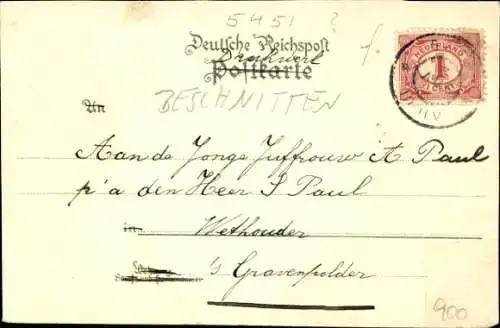 5451 ?
Deutsche Reichspost
Drukwerk
Postkarte
NEDERLAND
1
CENT
BESCHNITTEN
An
Aan de Jonge Juffrouw A Paul
p/a den Heer S Paul
in Wethouder
's Gravenpolder
900